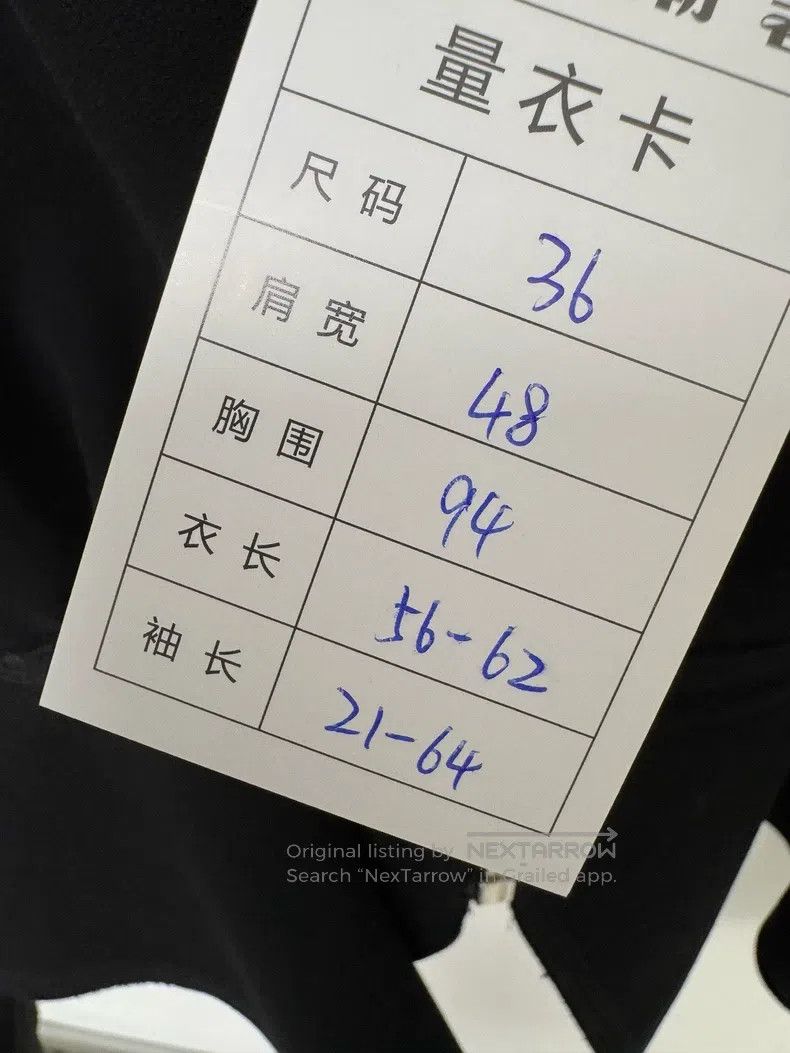 量衣卡
尺码 36
肩宽 48
胸围 94
衣长 56-62
袖长 21-64
Original listing by NEXTARROW
Search “NexTarrow” in Grailed app.